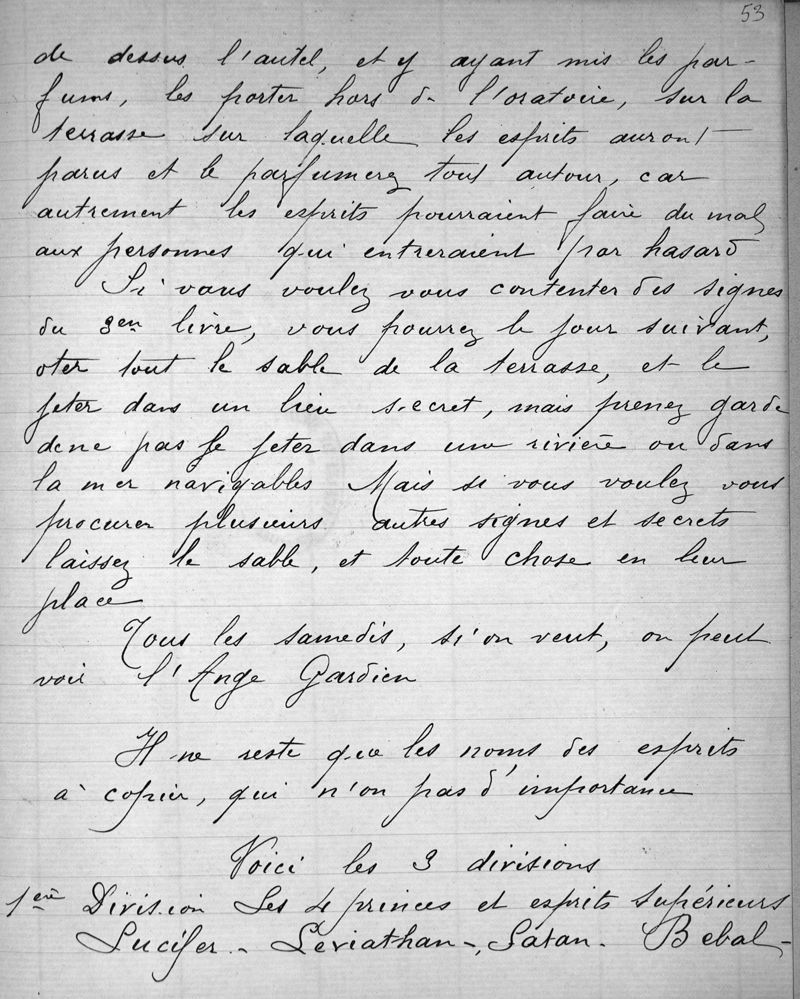 53
de dessus l'autel, et y ayant mis les par-
fums, les porter hors de l'oratoire, sur la
terrasse sur laquelle les esprits auront
parus et le parfumerez tout autour, car
autrement les esprits pourraient faire du mal
aux personnes qui entreraient par hasard
Si vous voulez vous contenter des signes
du 3en livre, vous pourrez le jour suivant,
oter tout le sable de la terrasse, et le
jeter dans un lieu secret, mais prenez garde
de ne pas le jeter dans une rivière ou dans
la mer navigables Mais si vous voulez vous
procurer plusieurs autres signes et secrets
laissez le sable, et toute chose en leur
place
Tous les samedis, si on veut, on peut
voir l'Ange Gardien
Il ne reste que les noms des esprits
à copier, qui n'on pas d'importance
Voici les 3 divisions
1ere Division Les 4 princes et esprits supérieurs
Lucifer - Leviathan -, Satan - Bebal -